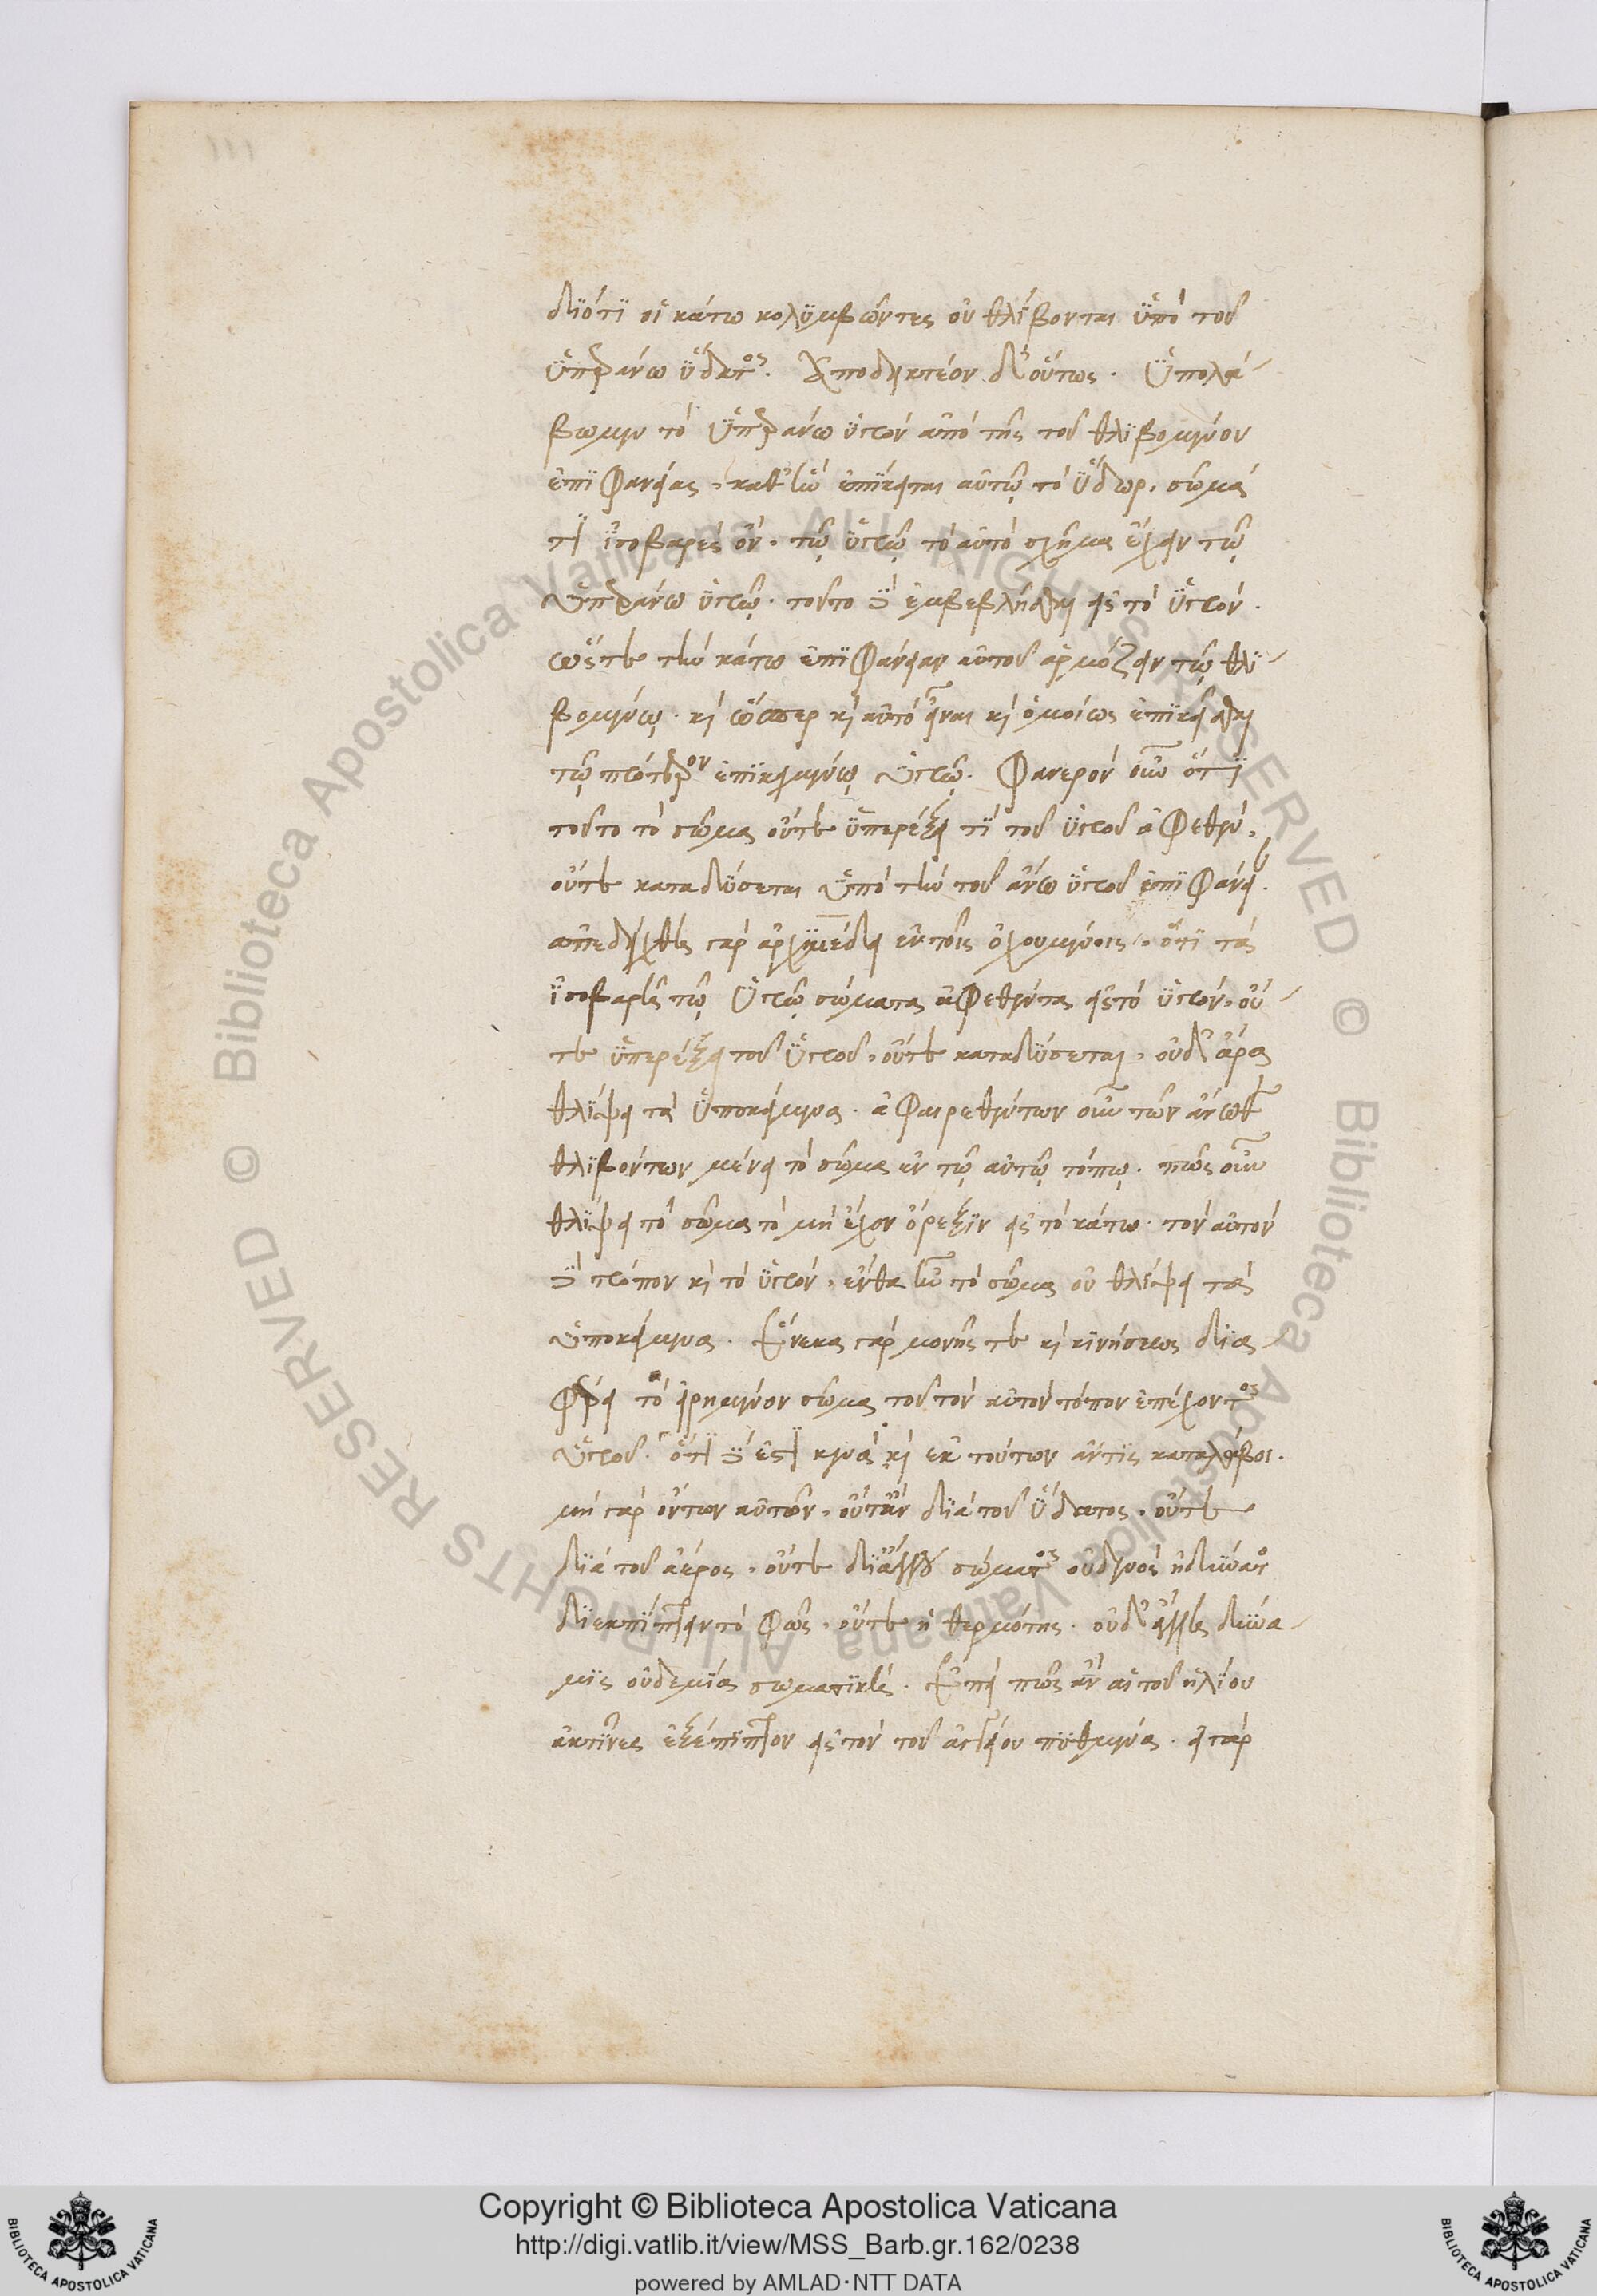 διότι οἱ κάτω κολυμβῶντες οὐ θλίβονται ὑπὸ τοῦ
ὑπεράνω ὕδατος. Ἀποδεικτέον δ' οὕτως. Ὑπολά-
βωμεν τὸ ὑπεράνω ὑγρὸν ἀπὸ τῆς τοῦ θλιβομένου
ἐπιφανείας, καθ' ἣν ἐπίκειται αὐτῷ τὸ ὕδωρ, σῶμά
τι ἰσοβαρὲς ὂν τῷ ὑγρῷ τὸ αὐτὸ σχῆμα ἔχειν τῷ
ὑπεράνω ὑγρῷ. τοῦτο δὲ ἐμβεβλῆσθαι εἰς τὸ ὑγρὸν.
ὥστε τὴν κάτω ἐπιφάνειαν αὐτοῦ ἁρμόζειν τῷ θλι-
βομένῳ. καὶ ὥσπερ καὶ αὐτὸ εἶναι καὶ ὁμοίως ἐπικεῖσθαι
τῷ πρότερον ἐπικειμένῳ ὑγρῷ. Φανερὸν οὖν ὅτι
τοῦτο τὸ σῶμα οὔτε ὑπερέξει τι τοῦ ὑγροῦ ἀφεθὲν,
οὔτε καταδύσεται ὑπὸ τὴν τοῦ ἄνω ὑγροῦ ἐπιφάνει.
ἀπεδείχθη γὰρ ἀρχιμήδει ἐν τοῖς ὀχουμένοις, ὅτι τὰ
ἰσοβαρῆ τῷ ὑγρῷ σώματα ἀφεθέντα εἰς τὸ ὑγρὸν, οὔ-
τε ὑπερέξει τοῦ ὑγροῦ, οὔτε καταδύσεται, οὐδ' ἄρα
θλίψει τὰ ὑποκείμενα. ἀφαιρεθέντων οὖν τῶν ἄνωθεν
θλιβόντων μένει τὸ σῶμα ἐν τῷ αὐτῷ τόπῳ. πῶς οὖν
θλίψει τὸ σῶμα τὸ μὴ ἔχον ὄρεξιν εἰς τὸ κάτω. τὸν αὐτὸν
δὲ τρόπον καὶ τὸ ὑγρὸν, ἔνθα ἦν τὸ σῶμα οὐ θλίψει τὰ
ὑποκείμενα. Ἕνεκα γὰρ μονῆς τε καὶ κινήσεως δια-
φέρει τὸ εἰρημένον σῶμα τοῦ τὸν αὐτὸν τόπον ἐπέχοντος
ὑγροῦ. ὅτι δέ ἐστι κενὰ καὶ ἐκ τούτων ἄν τις καταλάβοι.
μὴ γὰρ ὄντων αὐτῶν, οὔτ' ἂν διὰ τοῦ ὕδατος, οὔτε
διὰ τοῦ ἀέρος, οὔτε δι' ἄλλου σώματος οὐδενὸς ἠδύνατο
διεκπίπτειν τὸ φῶς, οὔτε ἡ θερμότης. οὐδ' ἄλλη δύνα-
μις οὐδεμία σωματική. Ἐπεὶ πῶς ἂν αἱ τοῦ ἡλίου
ἀκτῖνες ἐξέπιπτον εἰς τὸν τοῦ ἀγγείου πυθμένα. εἰ γὰρ
Copyright © Biblioteca Apostolica Vaticana
http://digi.vatlib.it/view/MSS_Barb.gr.162/0238
powered by AMLAD·NTT DATA